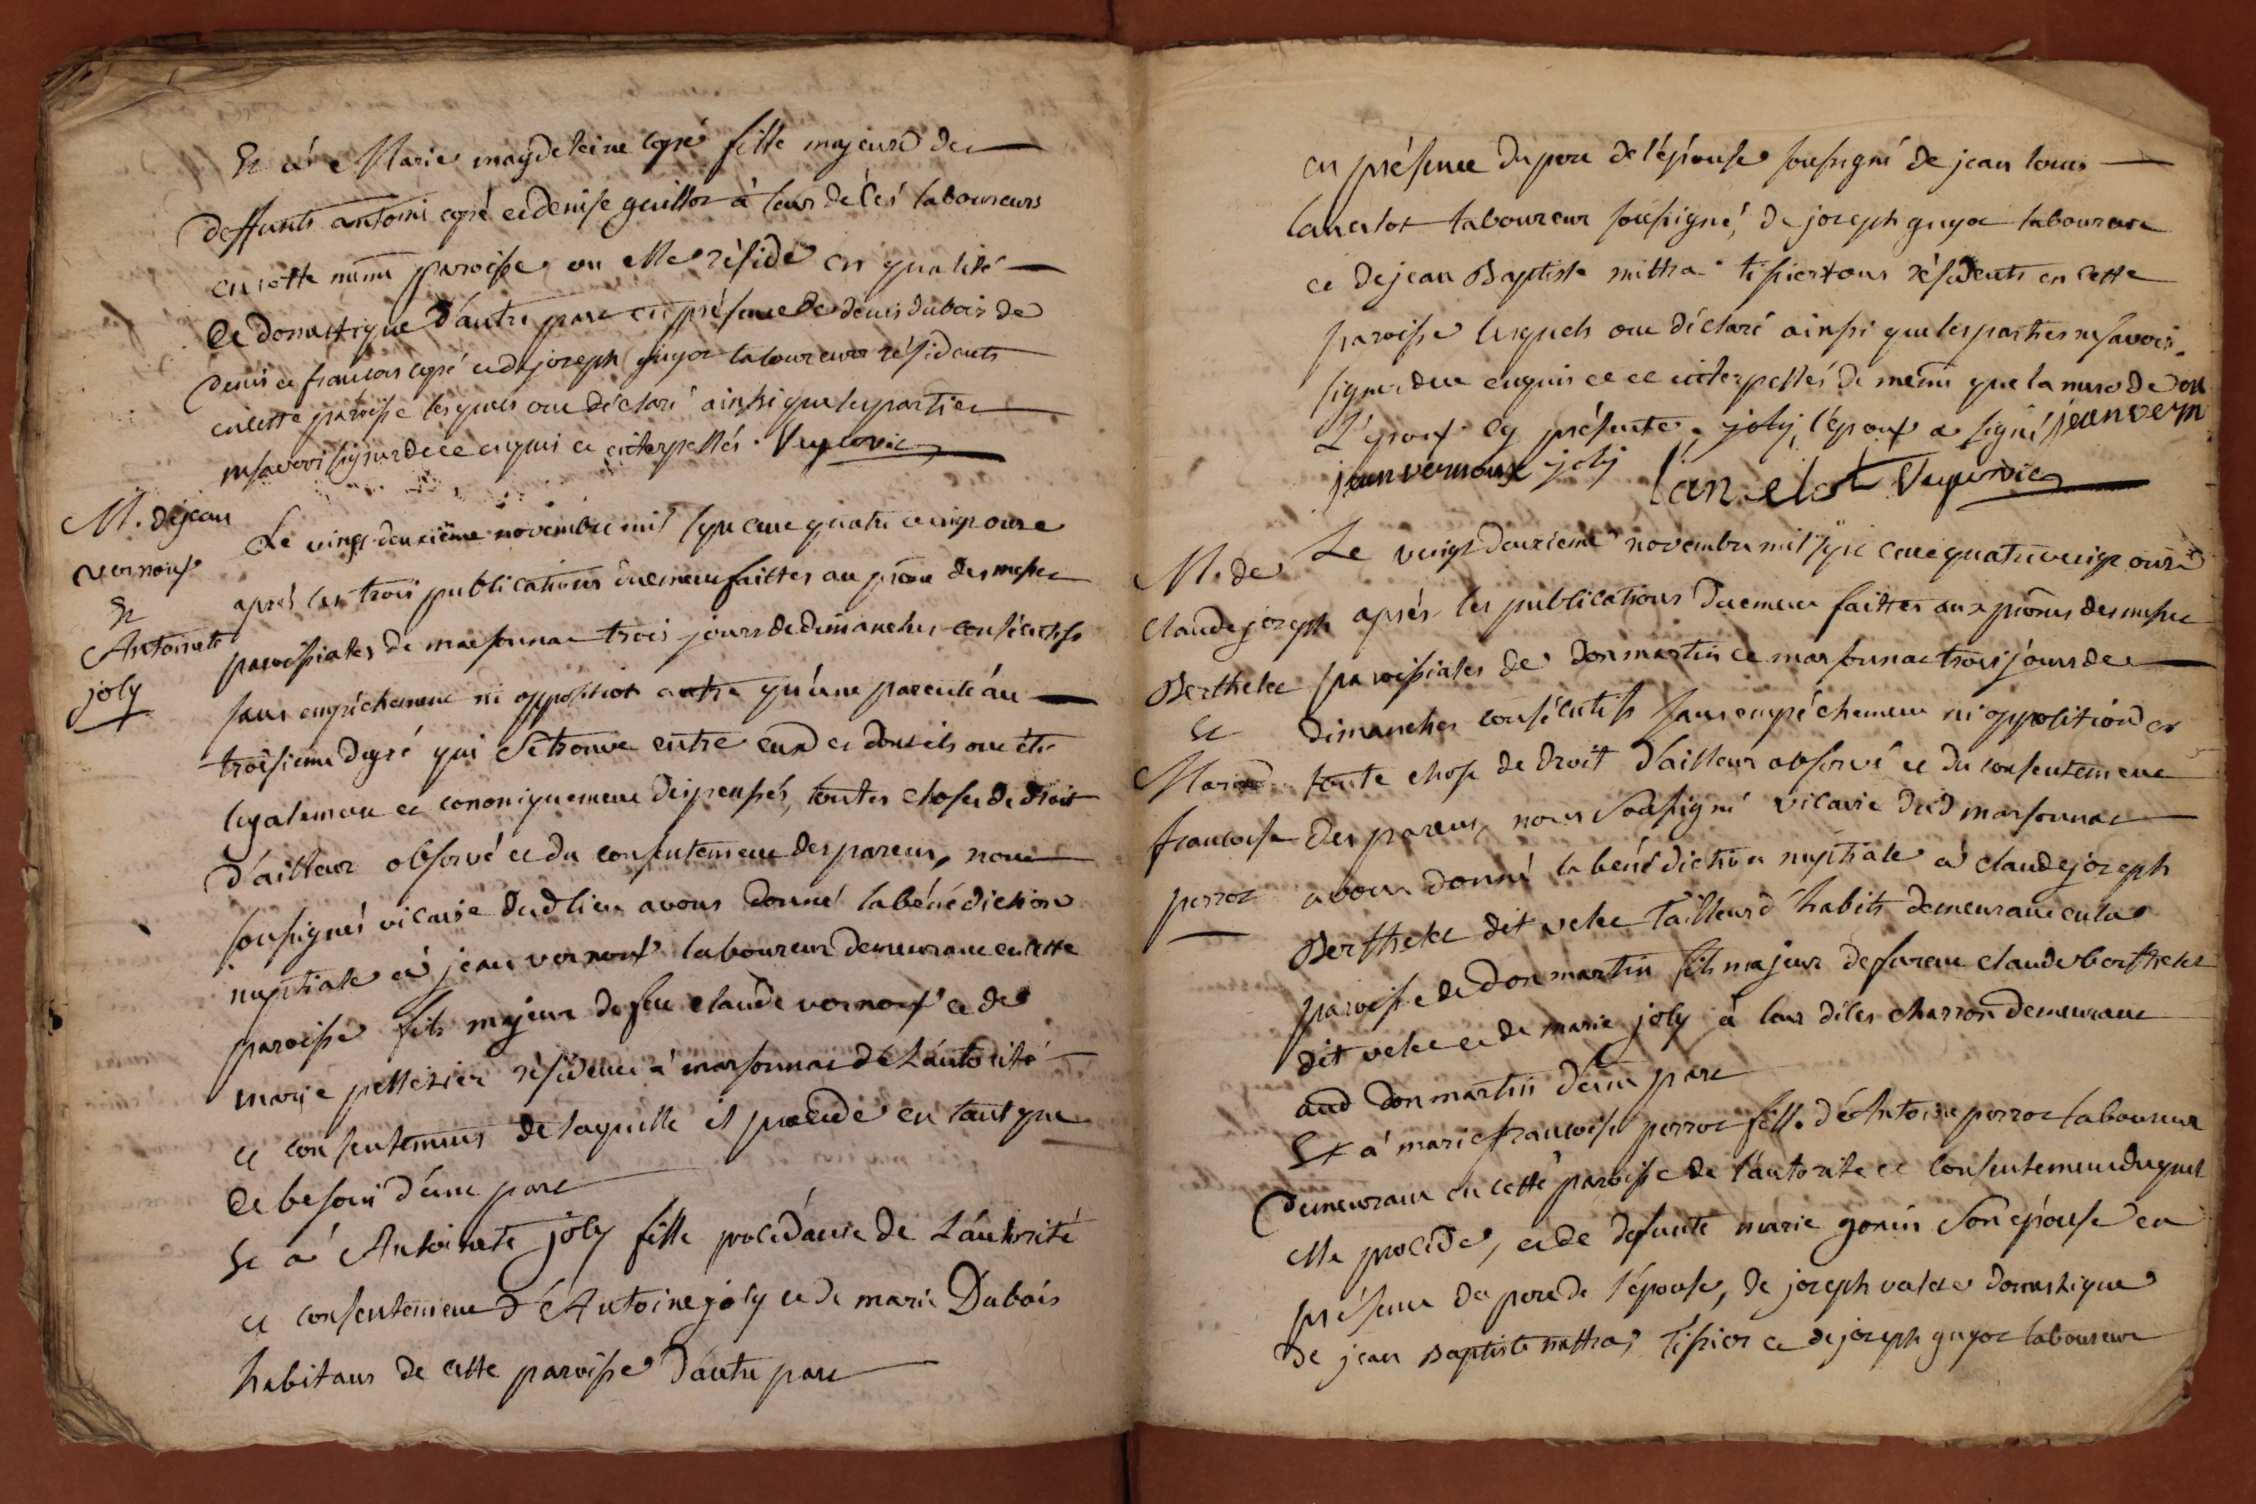 Et à Marie magdeleine cqré fille majeure de
deffunts antoine cqré et denise guillot à leur décès laboureurs
en cette même paroisse ou elle réside en qualité
de domestique d'autre part en présence de denis dubois de
denis et francois cqré et de joseph guyot laboureurs résidents
en cette paroisse lesquels ont déclaré ainsi que les parties
ne savoir signer de ce enquis et interpellés.
M. de jean
vernoux
Et
Antoinette
joly
Le vingt deuxième novembre mil sept cent quatre vingt onze
après les trois publications duement faittes au prône des messes
paroissiales de marsonnac trois jours de dimanches consécutifs
sans empêchement ni opposition autre qu'une parenté au
troisieme degré qui se trouve entre eux et dont ils ont été
legalement et cononiquement dispensés, toutes choses de droit
d'ailleur observé et du consentement des parens, nous
soussignés vicaire dud lieu avons donné la bénédiction
nuptiale à jean vernoux laboureur demeurant en cette
paroisse fils majeur de feu claude vernoux et de
marie pelletier résidente à marsonnac de l'autorité
et consentement de laquelle il procède en tant que
de besoin d'une part
Et à Antoinette joly fille procédante de l'autorité
et consentement d'Antoine joly et de marie Dubois
habitans de cette paroisse d'autre part
en présence du pere de l'épouse soussigné de jean louis
lancelot laboureur soussigné, de joseph guyot laboureur
et de jean Baptiste mittra tissier tous résidents en cette
paroisse lesquels ont déclaré ainsi que les parties ne savoir
signer de ce enquis et interpellés de même que la mere de
l'époux cy présente. joly, l'époux a signé jean vern
jean vernoux joly Lancelot
M. de
claude joseph
Berthelet
Et
Marie
francoise
perrot
Le vingt deuxieme novembre mil sept cent quatre vingt onze
après les publications duement faittes aux prônes des messes
paroissiales de donmartin et marsonnac trois jours de
dimanches consécutifs sans empêchement ni opposition et
toute chose de droit d'ailleur observé et du consentement
des parens, nous soussigné vicaire dud marsonnac
avons donné la bénédiction nuptiale à claude joseph
Berthelet dit velet tailleur d'habits demeurant en la
paroisse de donmartin fils majeur de claude berthelet
dit velet et de marie joly à leur décès charron demeurant
aud donmartin d'une part
Et à marie francoise perrot fille d'Antoine perrot laboureur
demeurant en cette paroisse de l'autorité et consentement duquel
elle procède, et de defunte marie gonin son épouse en
présence du pere de l'épouse, de joseph domestique
de jean Baptiste mittra, tissier et de joseph guyot laboureur